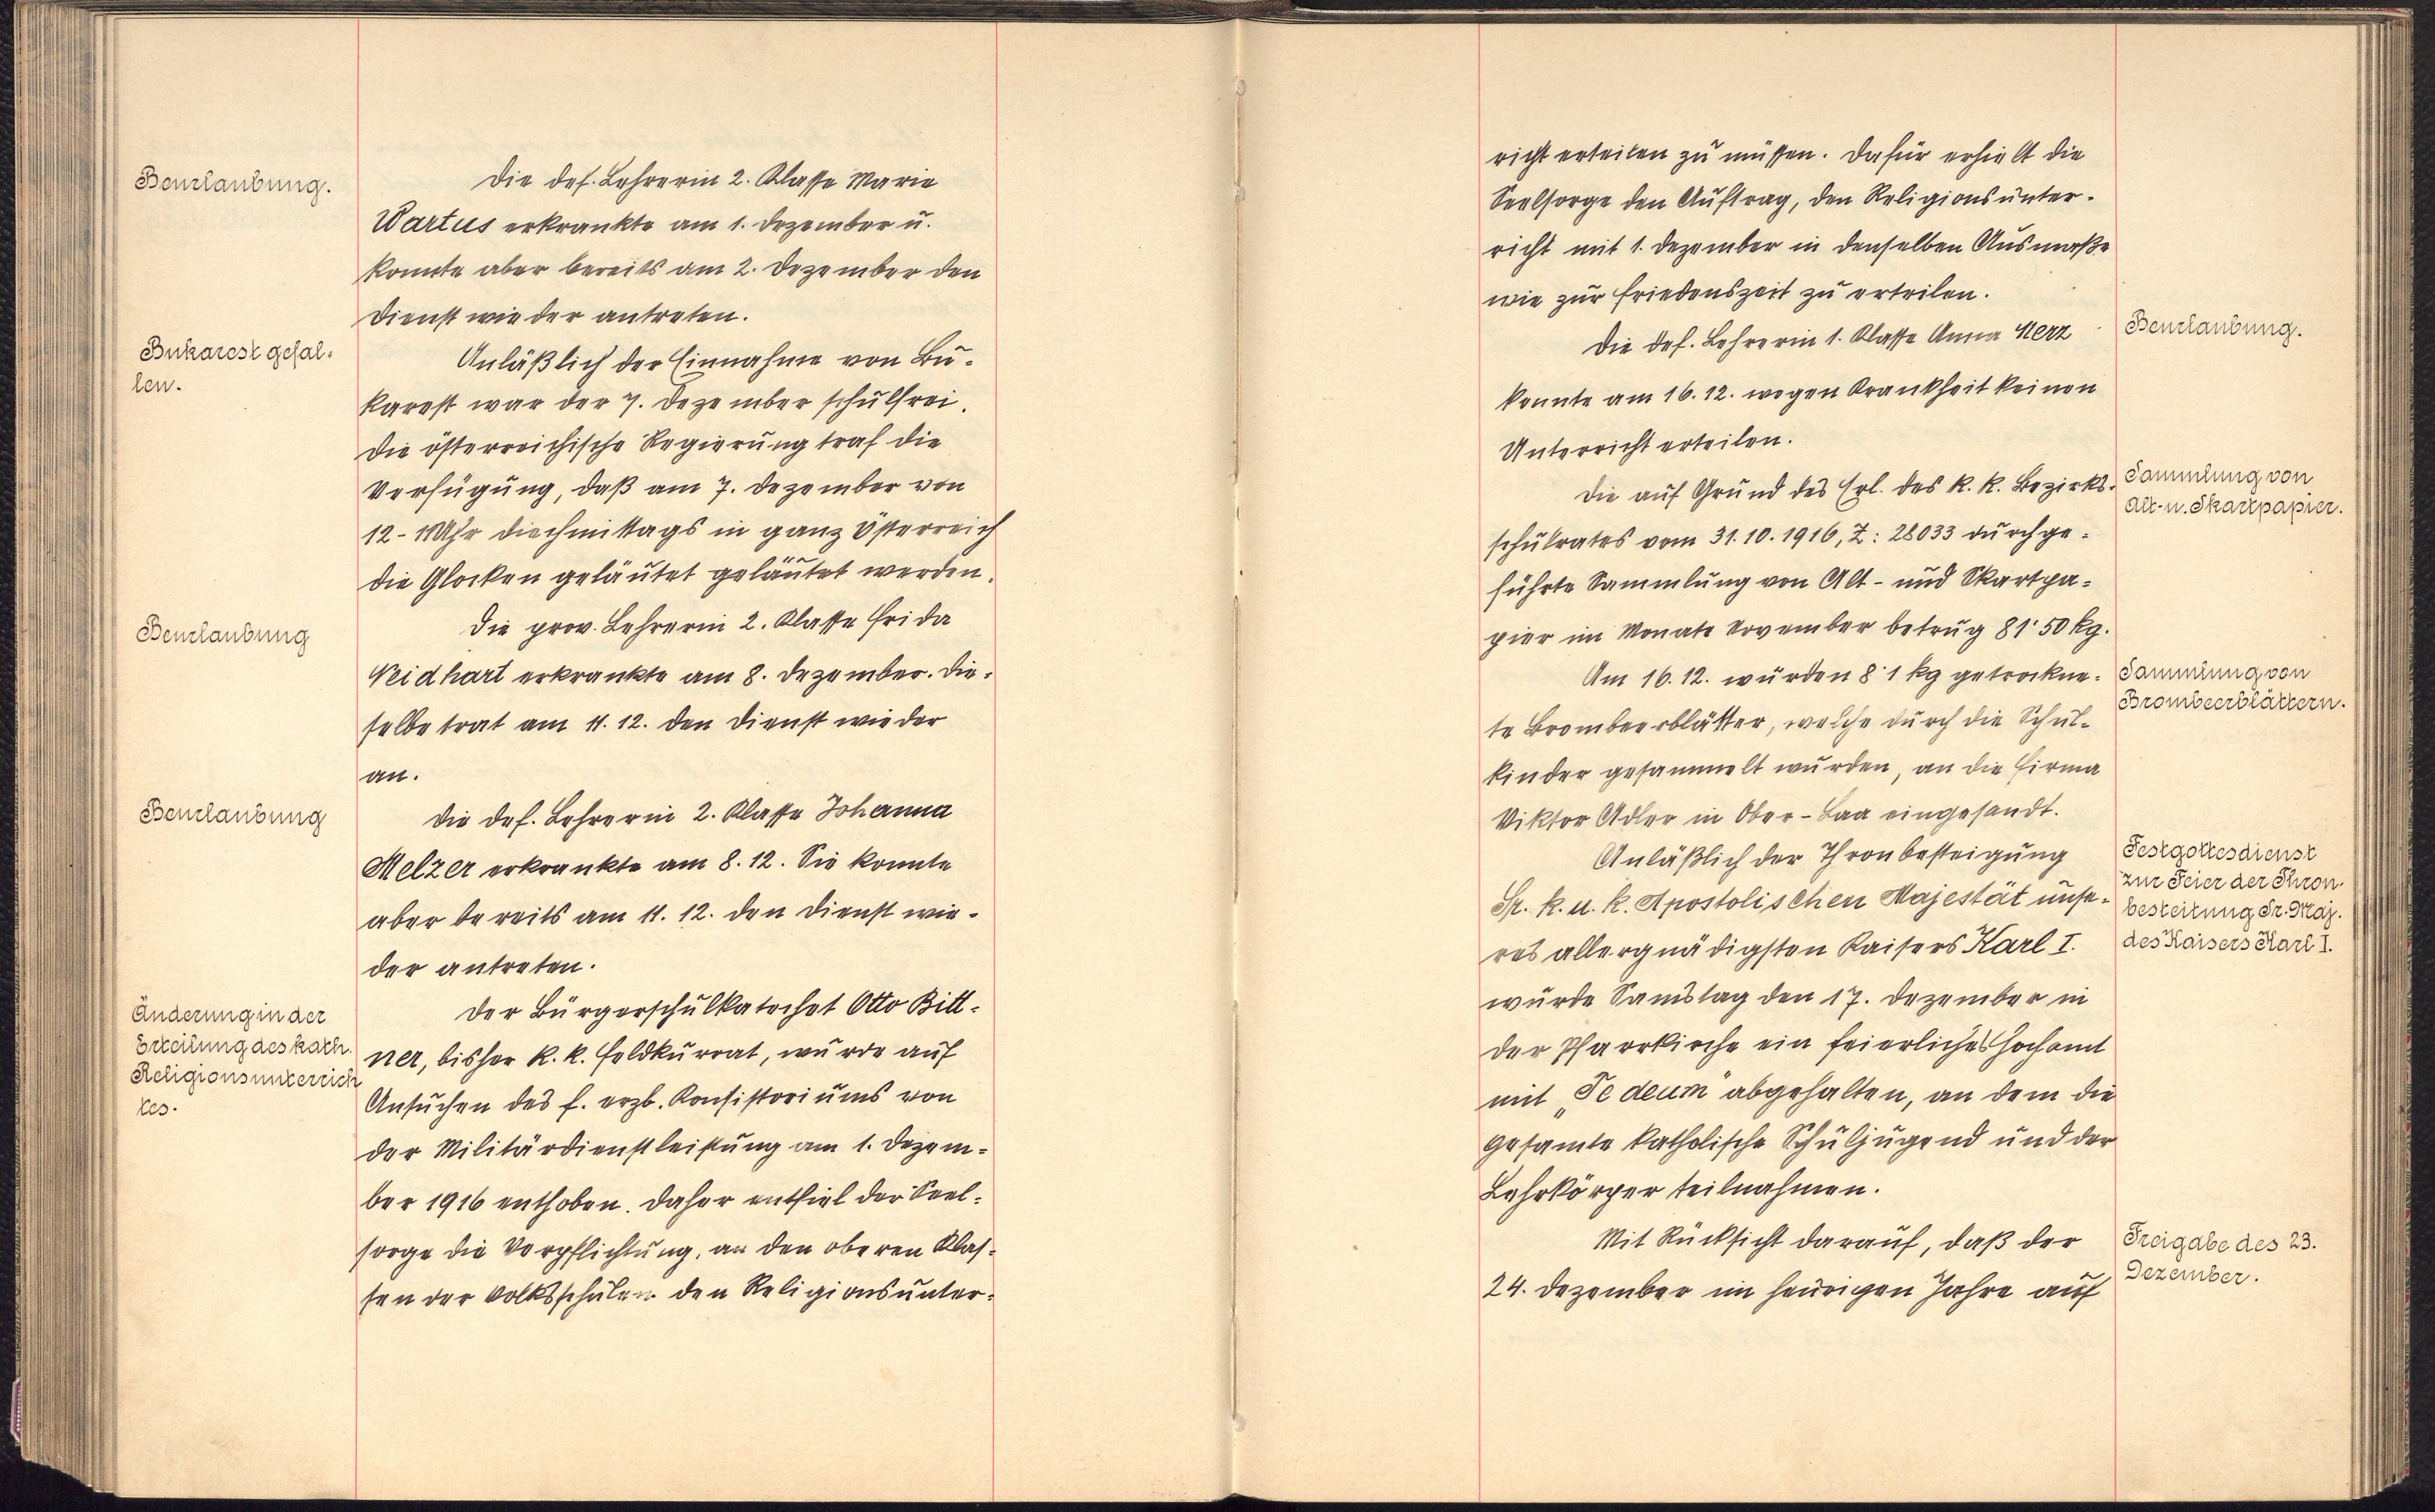 Beurlaubung.
Die def. Lehrerin 2. Klasse Marie
Wartus erkrankte am 1. Dezember u.
konnte aber bereits am 2. Dezember den
Dienst wieder antreten.
Bukarest gefal-
len.
Anläßlich der Einnahme von Bu-
karest war der 7. Dezember schulfrei.
Die österreichische Regierung traf die
Verfügung, daß am 7. Dezember von
12 - 1 Uhr in ganz Österreich
die Glocken geläutet geläutet werden.
Beurlaubung
Die prov. Lehrerin 2. Klasse Frida
Neidhart erkrankte am 8. Dezember. Die-
selbe trat am 11. 12. den Dienst wieder
an.
Beurlaubung
Die def. Lehrerin 2. Klasse Johanna
Melzer erkrankte am 8. 12. Sie konnte
aber bereits am 11. 12. den Dienst wie-
der antreten.
Änderung in der
Erteilung des kath.
Religionsunterrich
tes.
Der Bürgerschulkatechet Otto Bitt-
ner, bisher k. k. Feldkurat, wurde auf
Ansuchen des f. erzb. Konsistoriums von
der Militärdienstleistung am 1. Dezem-
ber 1916 enthoben. Daher entfiel der Seel-
sorge die Verpflichtung, an den oberen Klas-
sen der Volksschulen den Religionsunter-
richt erteilen zu müssen. Dafür erhielt die
Seelsorge den Auftrag, den Religionsunter-
richt mit 1. Dezember in denselben Ausmaße
wie zur Friedenszeit zu erteilen.
Beurlaubung.
Die def. Lehrerin 1. Klasse Anna Merz
konnte am 16. 12. wegen Krankheit keinen
Unterricht erteilen.
Sammlung von
Alt- u. Skartpapier.
Die auf Grund des Erl. des k. k. Bezirks-
schulrates vom 31. 10. 1916, Z: 28033 durchge-
führte Sammlung von Alt - und Skartpa-
pier im Monate November betrug 81˙50 kg.
Sammlung von
Brombeerblättern.
Am 16. 12. wurden 8˙1 kg getrockne-
te Brombeerblätter, welche durch die Schul-
kinder gesammelt wurden, an die Firma
Viktor Adler in Ober-Laa eingesandt.
Festgottesdienst
zur Feier der Thron-
besteitung Sr. Maj.
des Kaisers Karl I.
Anläßlich der Thronbesteigung
Sr. k. u. k. Apostolischen Majestät unse-
res allergnädigsten Kaisers Karl I.
wurde Samstag den 17. Dezember in
der Pfarrkirche ein feierliches Hochamt
mit „Te deum" abgehalten, an dem die
gesamte katholische Schuljugend und der
Lehrkörper teilnahmen.
Freigabe des 23.
Dezember.
Mit Rücksicht darauf, daß der
24. Dezember im heurigen Jahre auf